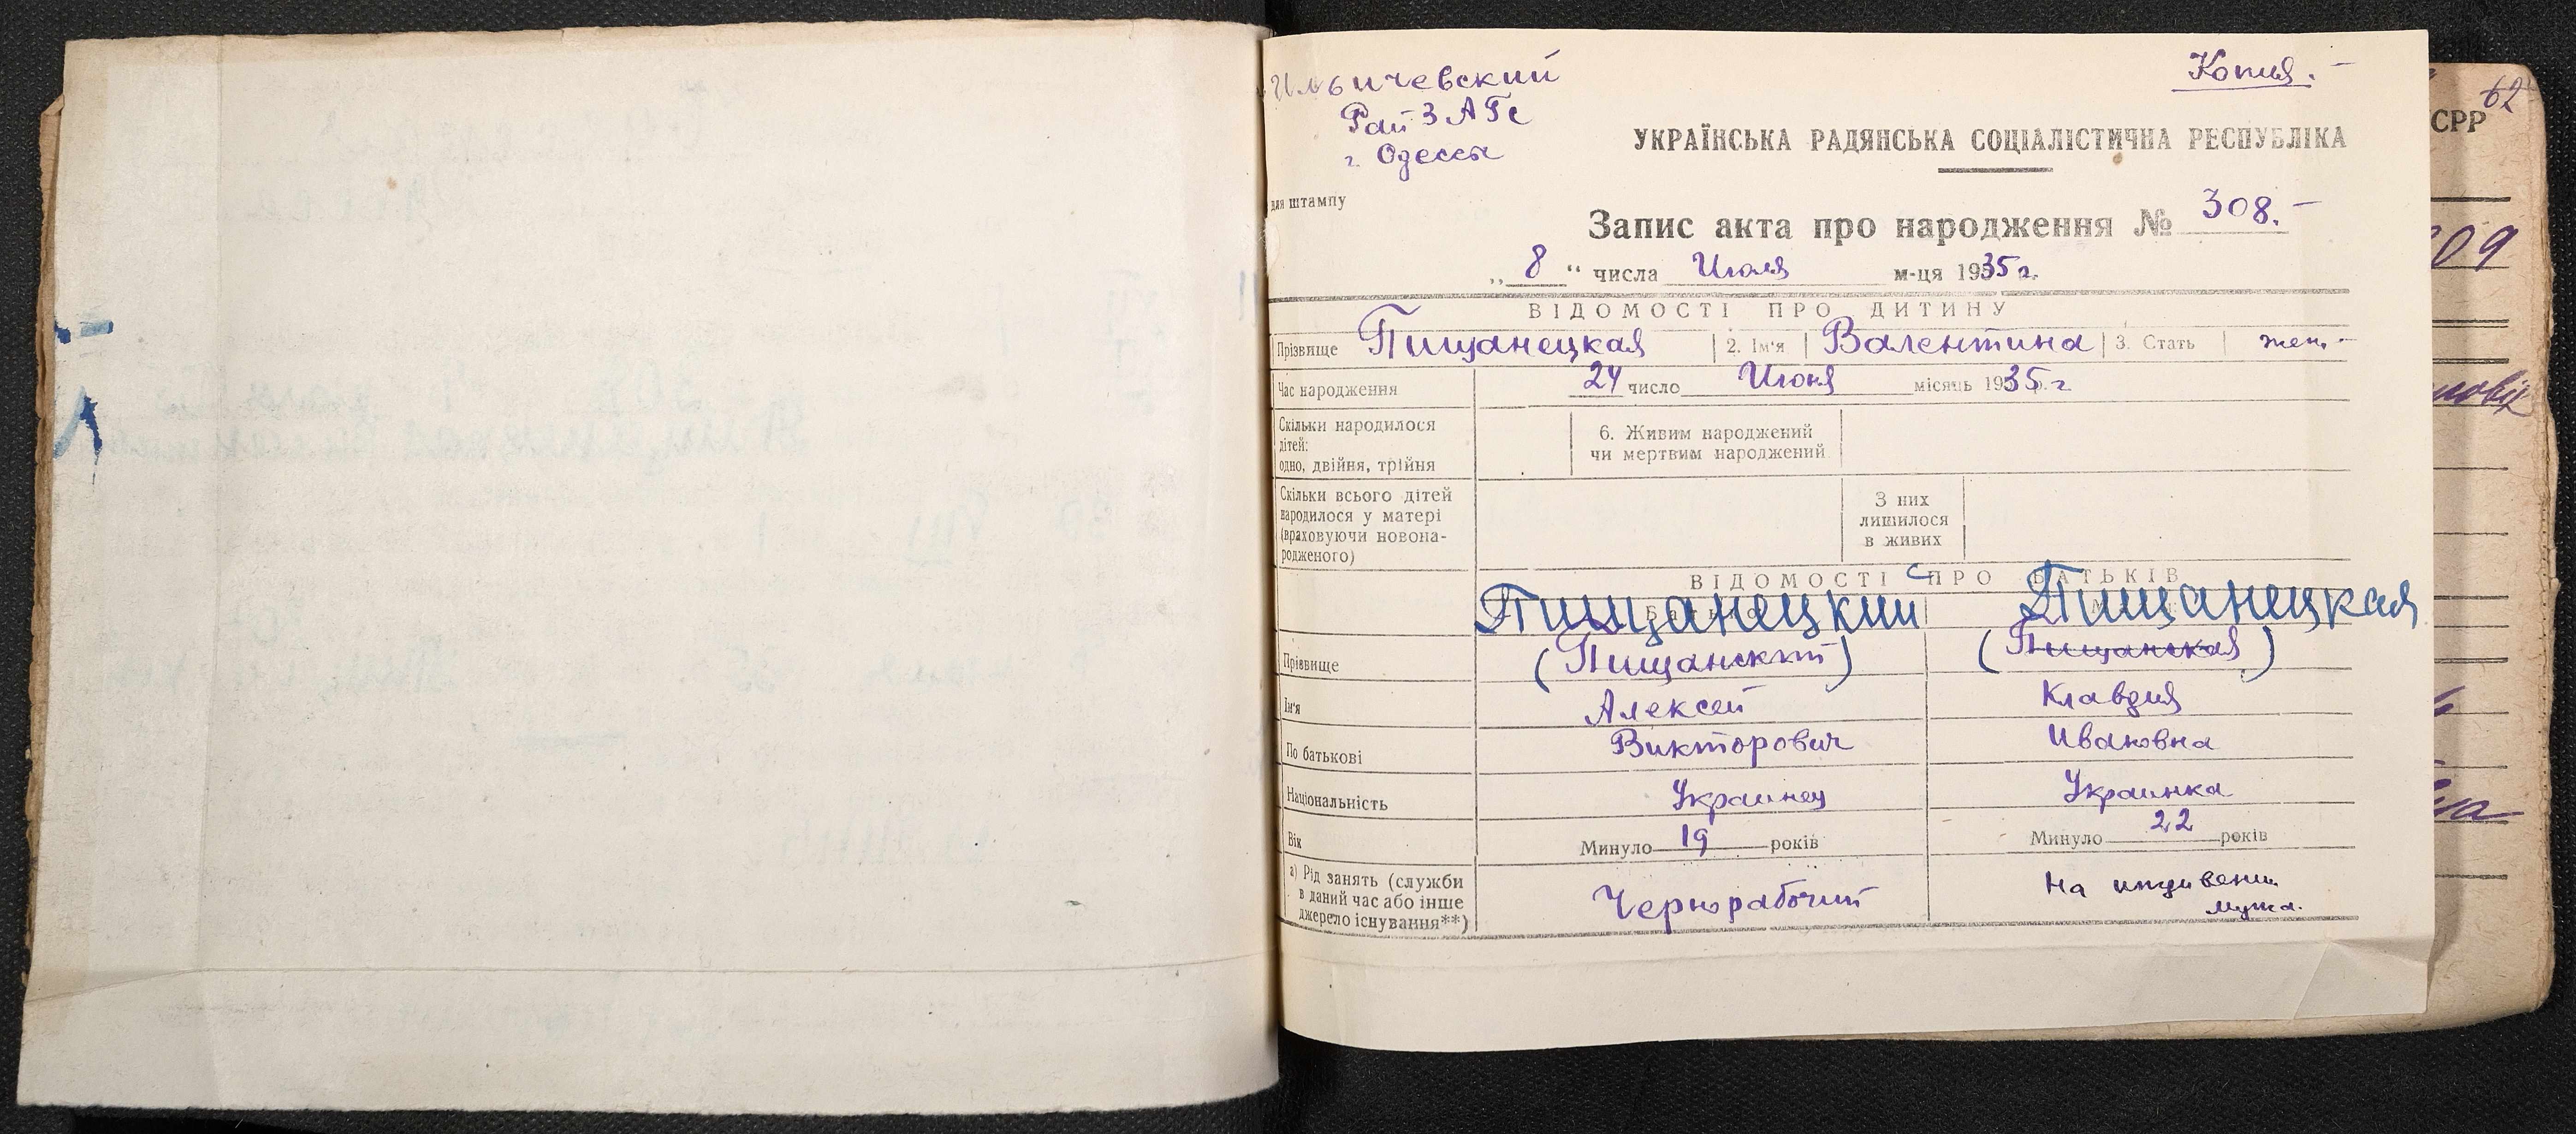 Ильичевский
Рай ЗАГс
г. Одессы
Копия. –
62
СРР
УКРАЇНСЬКА РАДЯНСЬКА СОЦІАЛІСТИЧНА РЕСПУБЛІКА
для штампу
Запис акта про народження № 308. –
09
„ 8 “ числа Июля м-ця 1935 г.
ВІДОМОСТІ ПРО ДИТИНУ
Прізвище Пищанецкая 2. Ім'я Валентина 3. Стать жен. –
Час народження 24 число Июня місяць 1935 г.
Скільки народилося
дітей:
одно, двійня, трійня
6. Живим народжений
чи мертвим народжений
Скільки всього дітей
народилося у матері
(враховуючи новона-
родженого)
З них
лишилося
в живих
ВІДОМОСТІ ПРО БАТЬКІВ
Пищанецкий Пищанецкая
Прізвище (Пищанский) (Пищанская)
Ім'я Алексей Клавдия
По батькові Викторович Ивановна
Національність Украинец Украинка
Вік Минуло 19 років Минуло 22 років
а) Рід занять (служби
в даний час або інше
джерело існування**)
Чернорабочий
На иждивении
мужа.